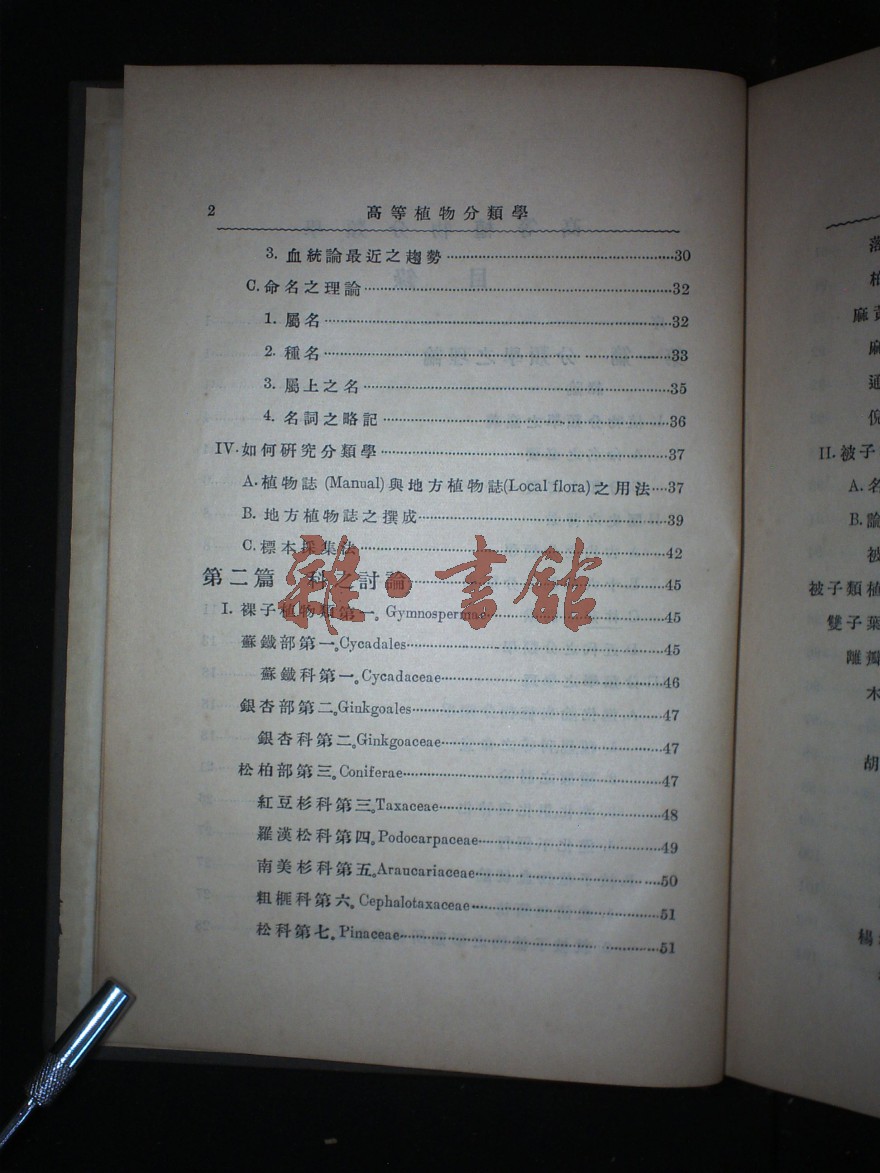 2 高等植物分類學
3. 血統論最近之趨勢 30
C. 命名之理論 32
1. 屬名 32
2. 種名 33
3. 屬上之名 35
4. 名詞之略記 36
IV. 如何研究分類學 37
A. 植物誌 (Manual) 與地方植物誌(Local flora)之用法 37
B. 地方植物誌之撰成 39
C. 標本採集法 42
第二篇 科之討論 45
I. 裸子植物類第一。Gymnospermae 45
蘇鐵部第一。Cycadales 45
蘇鐵科第一。Cycadaceae 46
銀杏部第二。Ginkgoales 47
銀杏科第二。Ginkgoaceae 47
松柏部第三。Coniferae 47
紅豆杉科第三。Taxaceae 48
羅漢松科第四。Podocarpaceae 49
南美杉科第五。Araucariaceae 50
粗榧科第六。Cephalotaxaceae 51
松科第七。Pinaceae 51
雜·書館
落
柏
麻黃
麻
通
倪
II. 被子
A. 名
B. 論
被
被子類植
雙子葉
離瓣
木
胡
楊